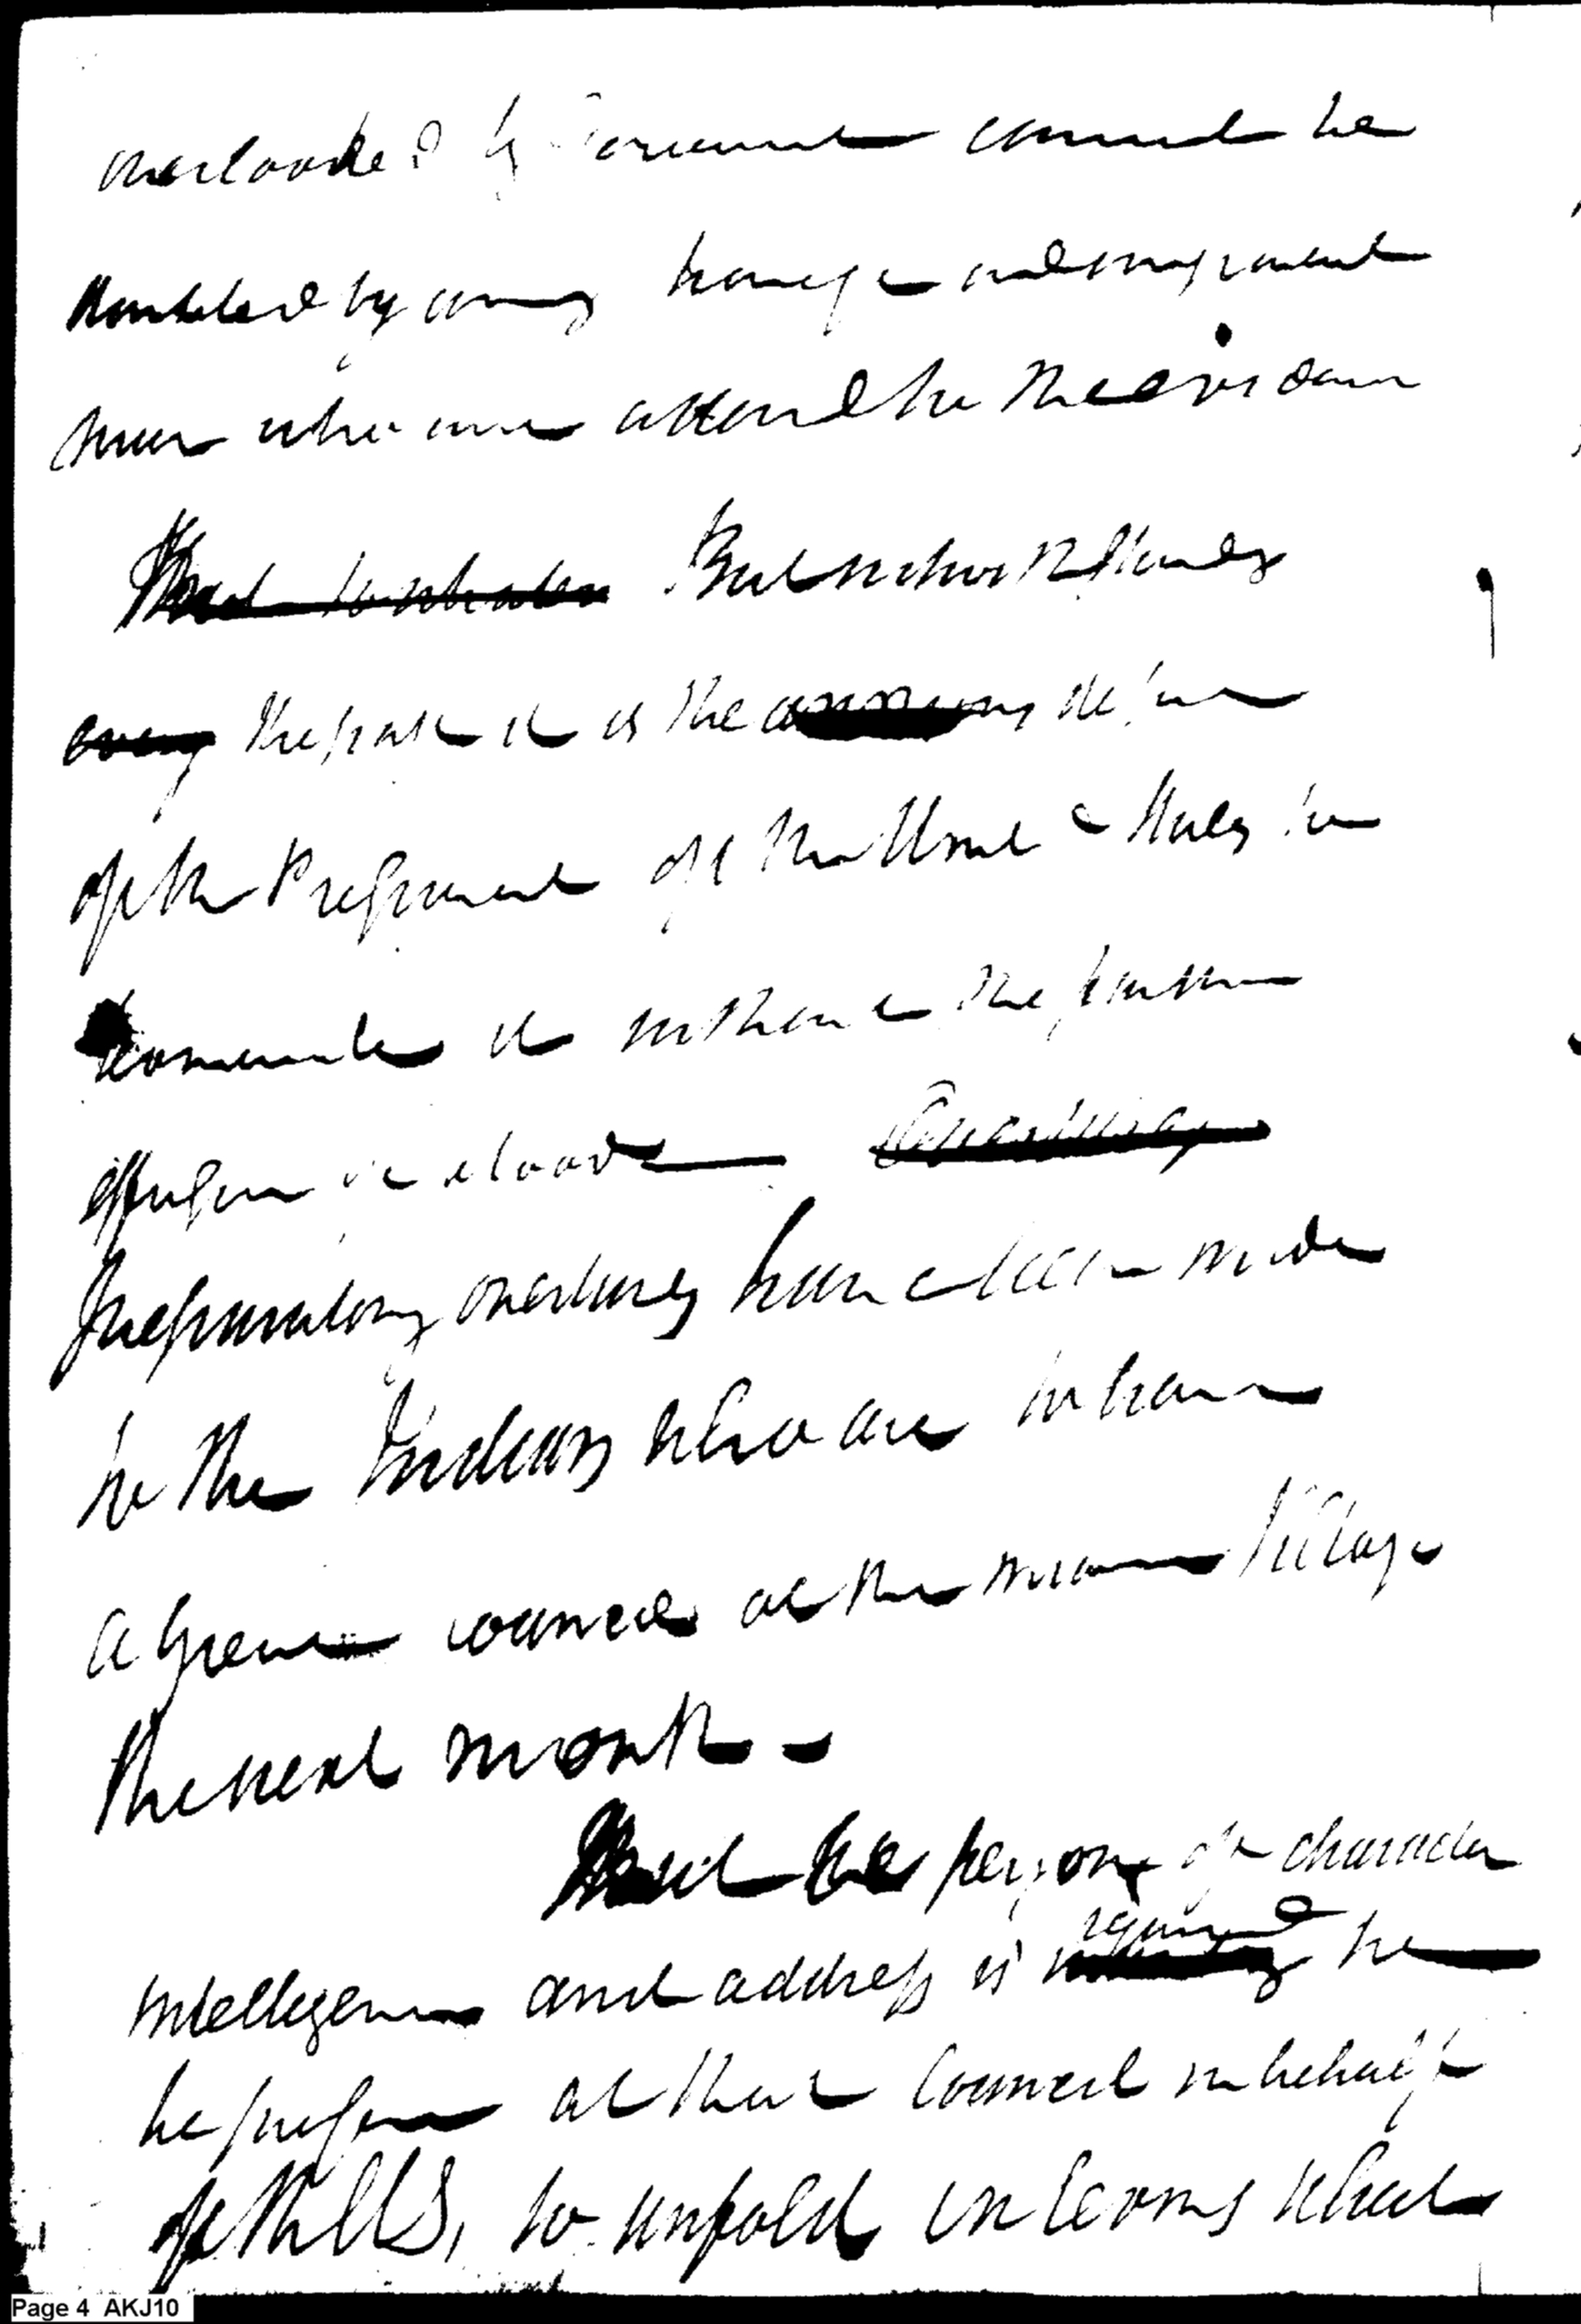 overlooked by cannot be
doubted by any honest and independent
man who will attend to the evidence
But But notwithstanding
every the past it is the desire
of the President of the United States to
terminate it without the further
effusion of blood
Preparatory overtures have been made
to the Indians who are to have
a grand council at the Miami Village
the next month -
But the person of character
intelligence and address is required to
be present at that Council in behalf
of the US, to unfold in terms what
Page 4 AKJ10